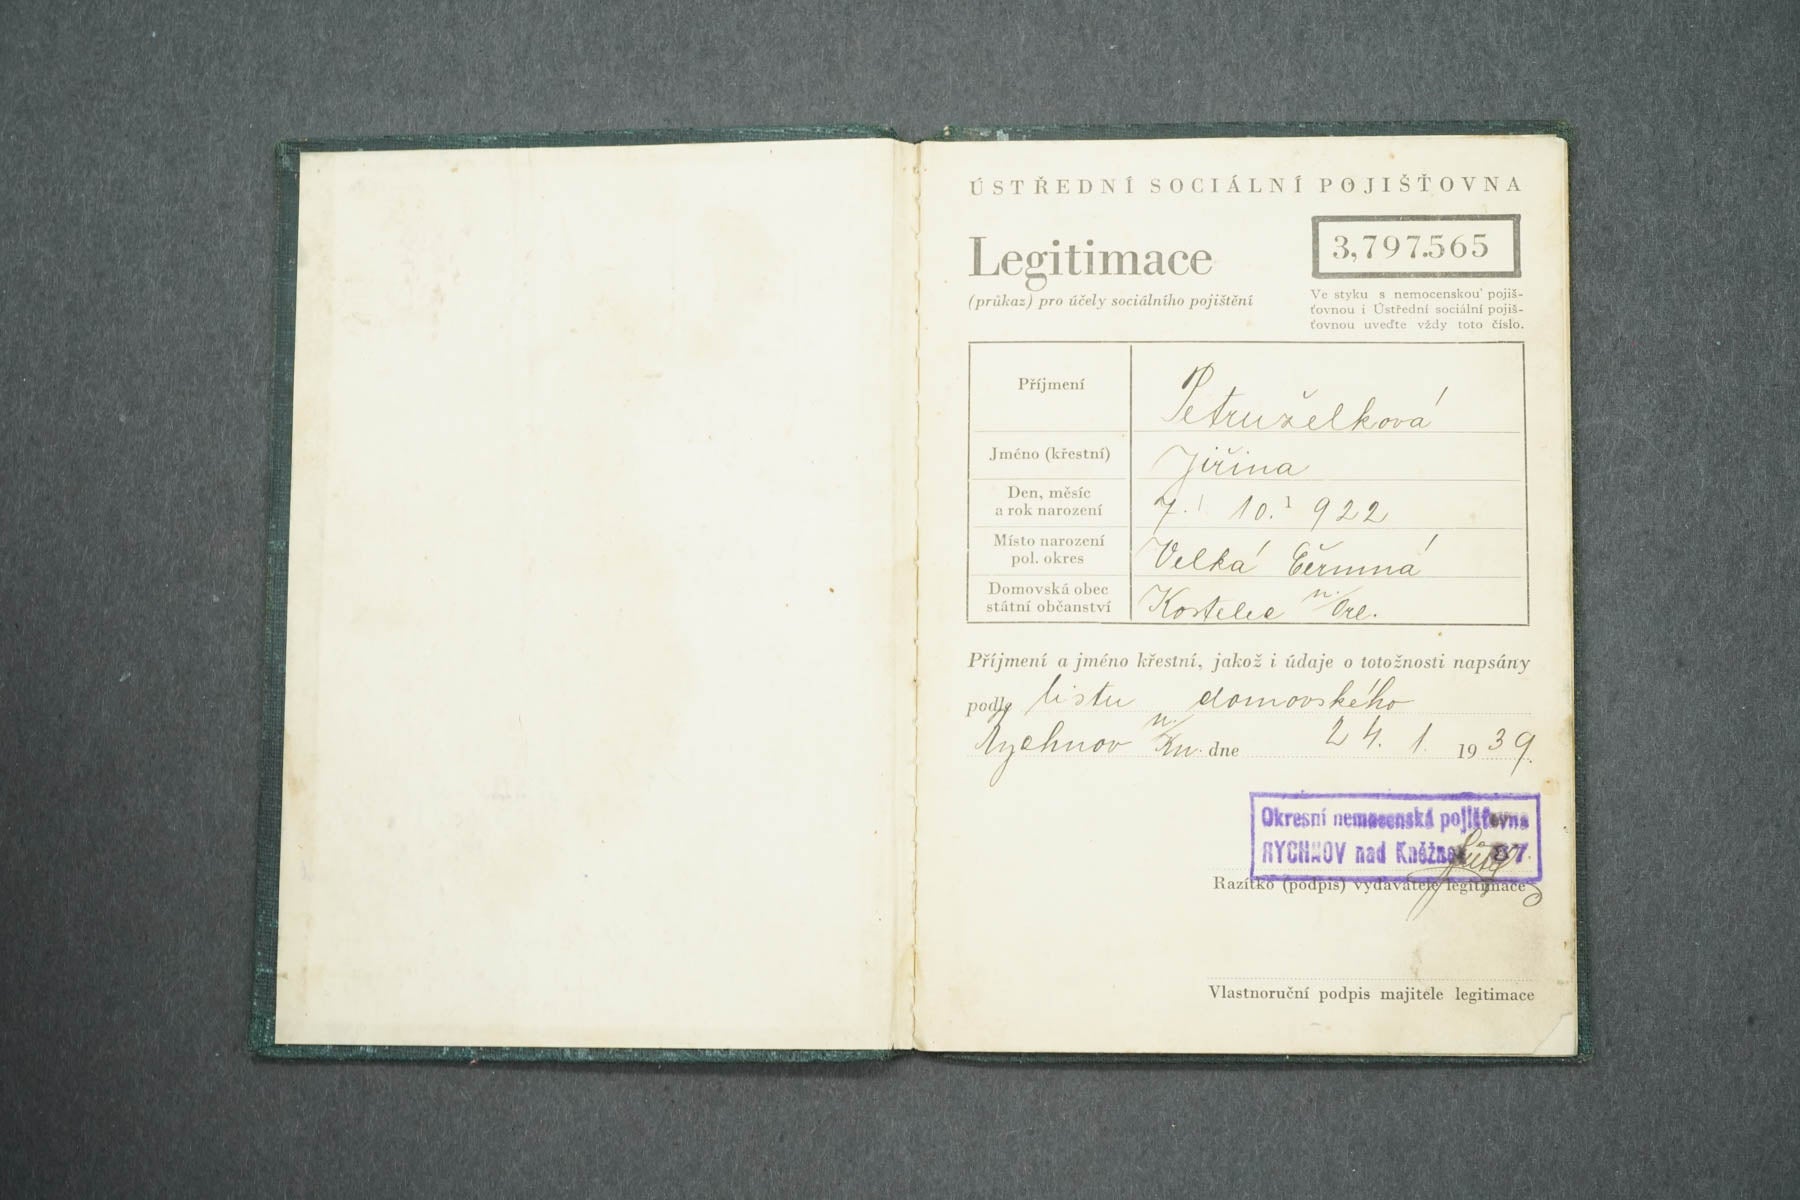 ÚSTŘEDNÍ SOCIÁLNÍ POJIŠŤOVNA
Legitimace
3,797.565
(průkaz) pro účely sociálního pojištění
Ve styku s nemocenskou pojiš-
ťovnou i Ústřední sociální pojiš-
ťovnou uveďte vždy toto číslo.
Příjmení
Petruželková
Jméno (křestní)
Jiřina
Den, měsíc
a rok narození
7. 10. 1922
Místo narození
pol. okres
Velká Čermná
Domovská obec
státní občanství
Kostelec n/Orl.
Příjmení a jméno křestní, jakož i údaje o totožnosti napsány
podle listu domovského
Rychnov n/Kn. dne 24. 1. 1939
Okresní nemocenská pojišťovna
RYCHNOV nad Kněžnou
Razítko (podpis) vydavatele legitimace
Vlastnoruční podpis majitele legitimace